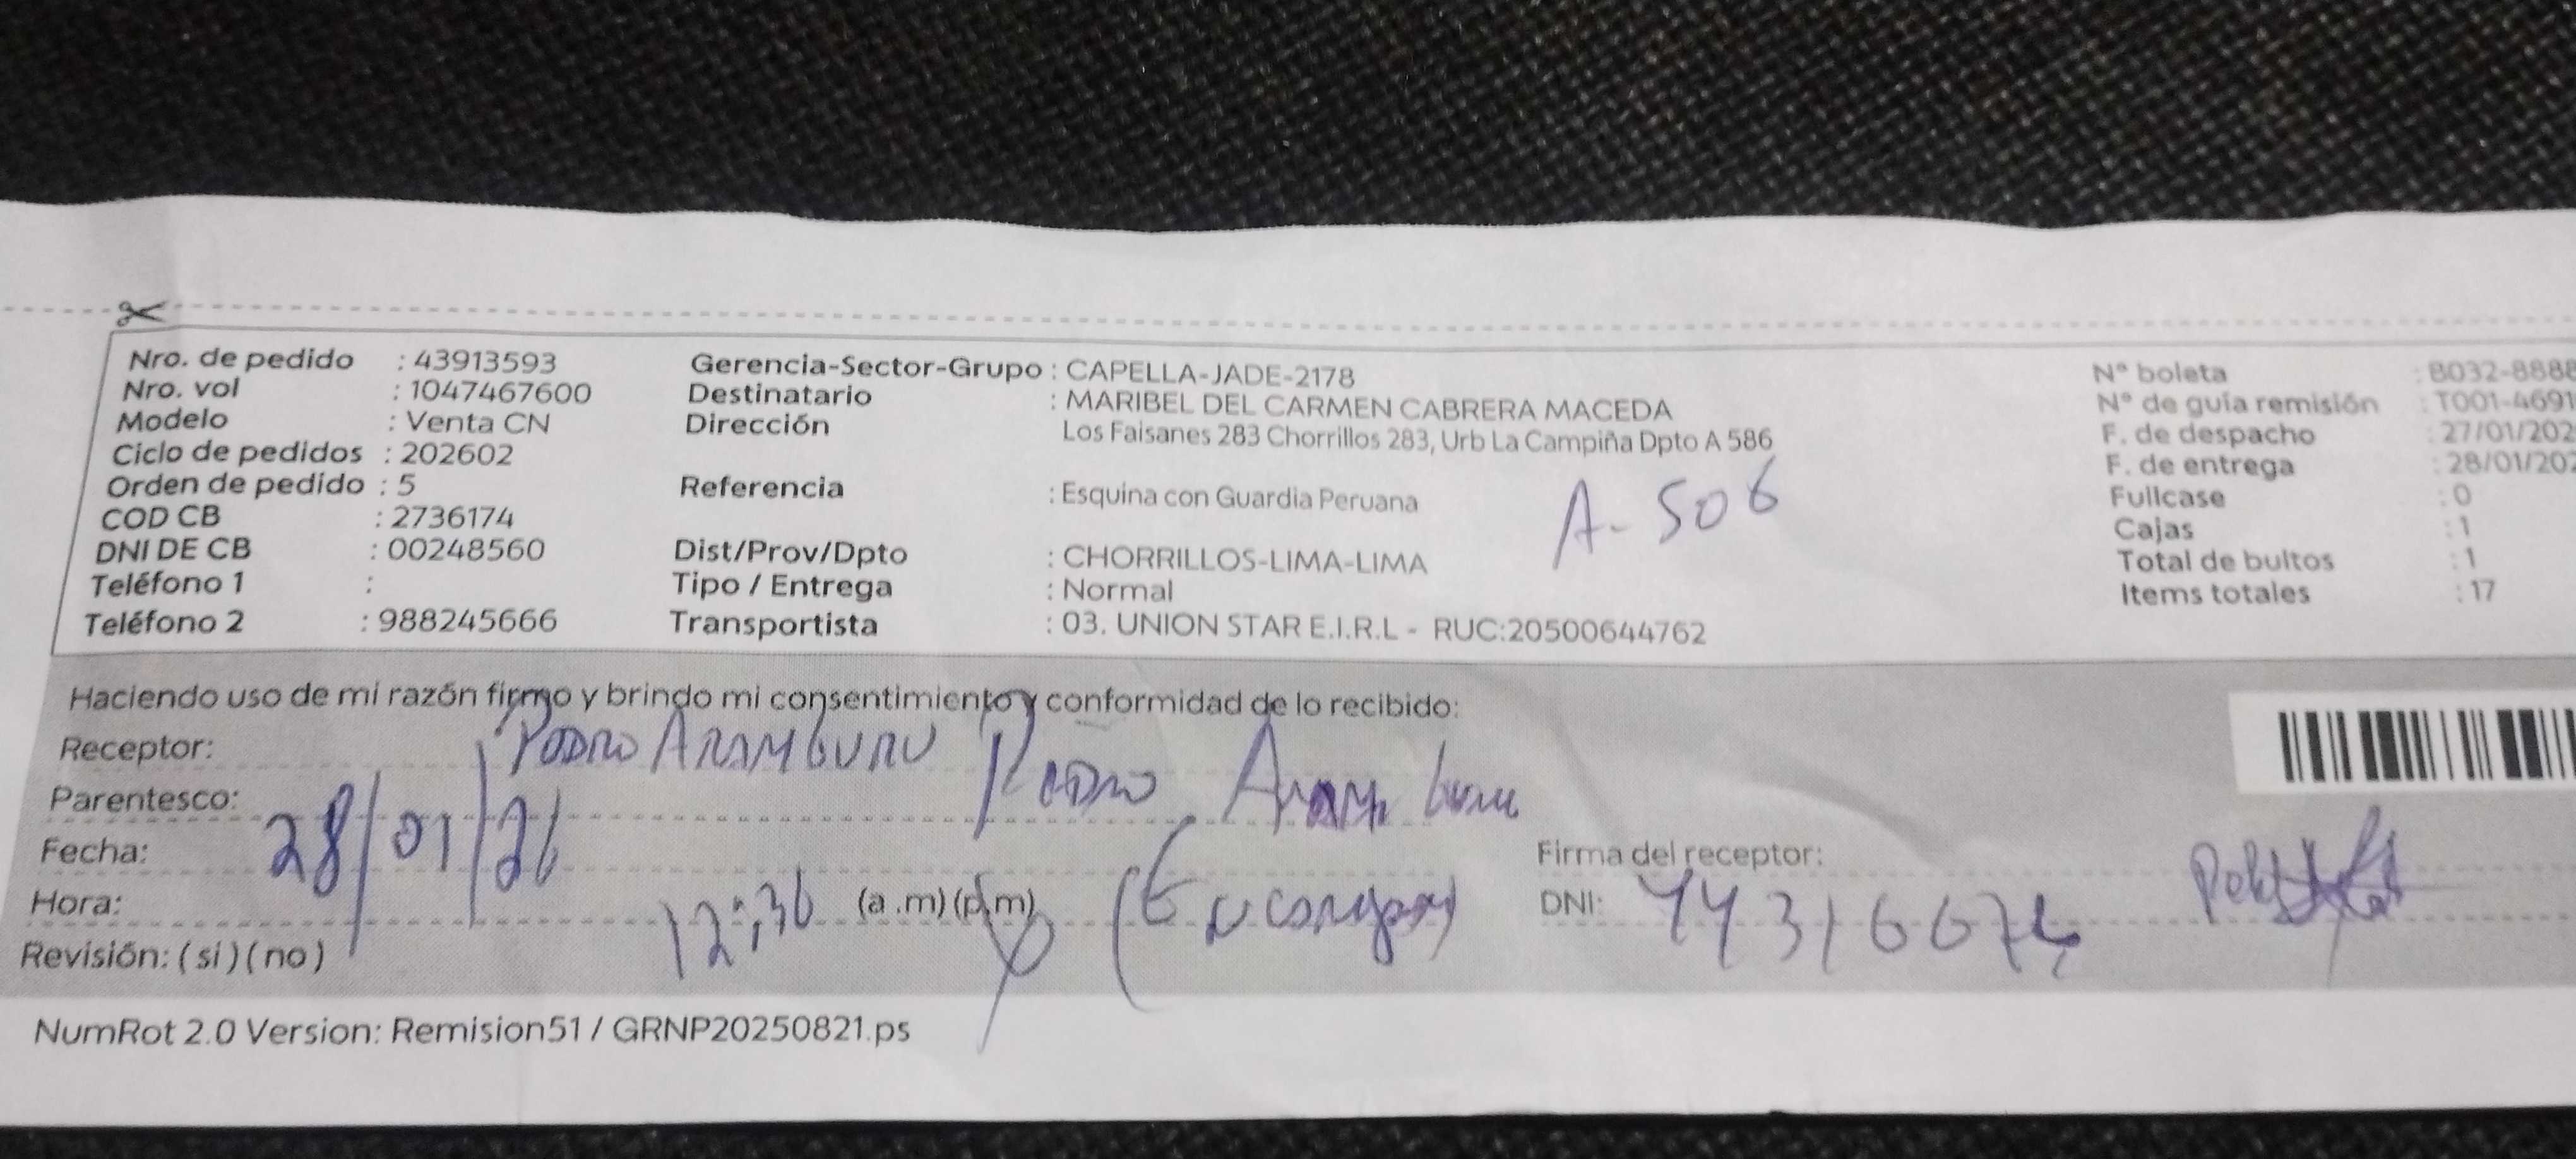 Nro. de pedido : 43913593 Gerencia-Sector-Grupo : CAPELLA-JADE-2178 N° boleta : B032-8888
Nro. vol : 1047467600 Destinatario : MARIBEL DEL CARMEN CABRERA MACEDA N° de guía remisión : T001-4691
Modelo : Venta CN Dirección Los Faisanes 283 Chorrillos 283, Urb La Campiña Dpto A 586 F. de despacho : 27/01/202
Ciclo de pedidos : 202602 F. de entrega : 28/01/202
Orden de pedido : 5 Referencia : Esquina con Guardia Peruana A-506 Fullcase : 0
COD CB : 2736174 Cajas : 1
DNI DE CB : 00248560 Dist/Prov/Dpto : CHORRILLOS-LIMA-LIMA Total de bultos : 1
Teléfono 1 : Tipo / Entrega : Normal Items totales : 17
Teléfono 2 : 988245666 Transportista : 03. UNION STAR E.I.R.L - RUC:20500644762
Haciendo uso de mi razón firmo y brindo mi consentimiento y conformidad de lo recibido:
Receptor: Pedro Aramburu Pedro Aramburu
Parentesco:
Fecha: 28/01/26 Firma del receptor:
Hora: 12:36 (a.m) (p.m) DNI:
Revisión: ( si ) ( no )
NumRot 2.0 Version: Remision51 / GRNP20250821.ps